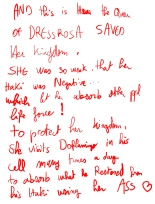 AND this is How the Queen
OF DRESSROSA SAVED
Her Kingdom.
SHE was so weak that her
Haki was Negative...
which let her absorb other ppl
life force!
to protect her kingdom,
She visits Doflamingo in his
cell many times a day
to absorb what he Restored from
his Haki using her ASS